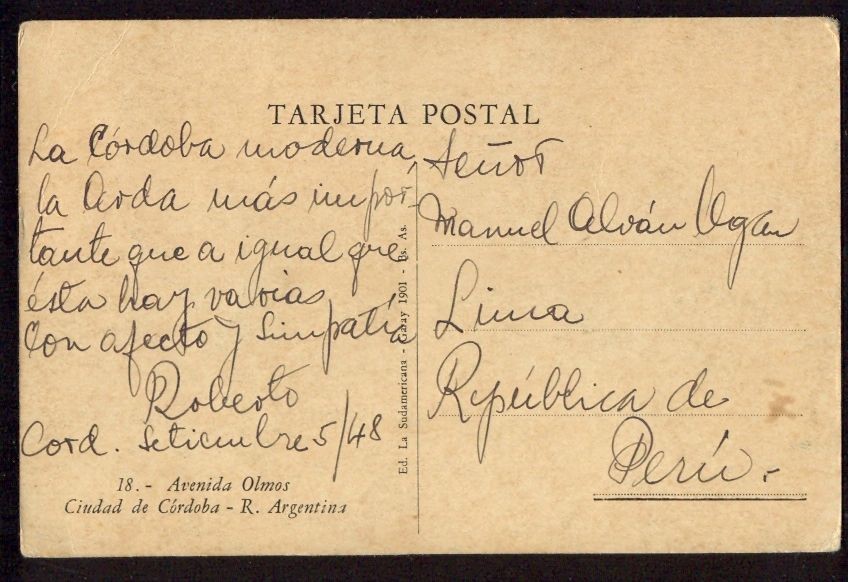 TARJETA POSTAL
La Córdoba moderna,
la Avda más impor-
tante que a igual que
ésta hay varias
Con afecto y Simpatía
Roberto
Cord. Setiembre 5/48
18. - Avenida Olmos
Ciudad de Córdoba - R. Argentina
Ed. La Sudamericana - Garay 1901 - Bs. As.
Señor
Manuel Alván
Lima
República de
Perú.-